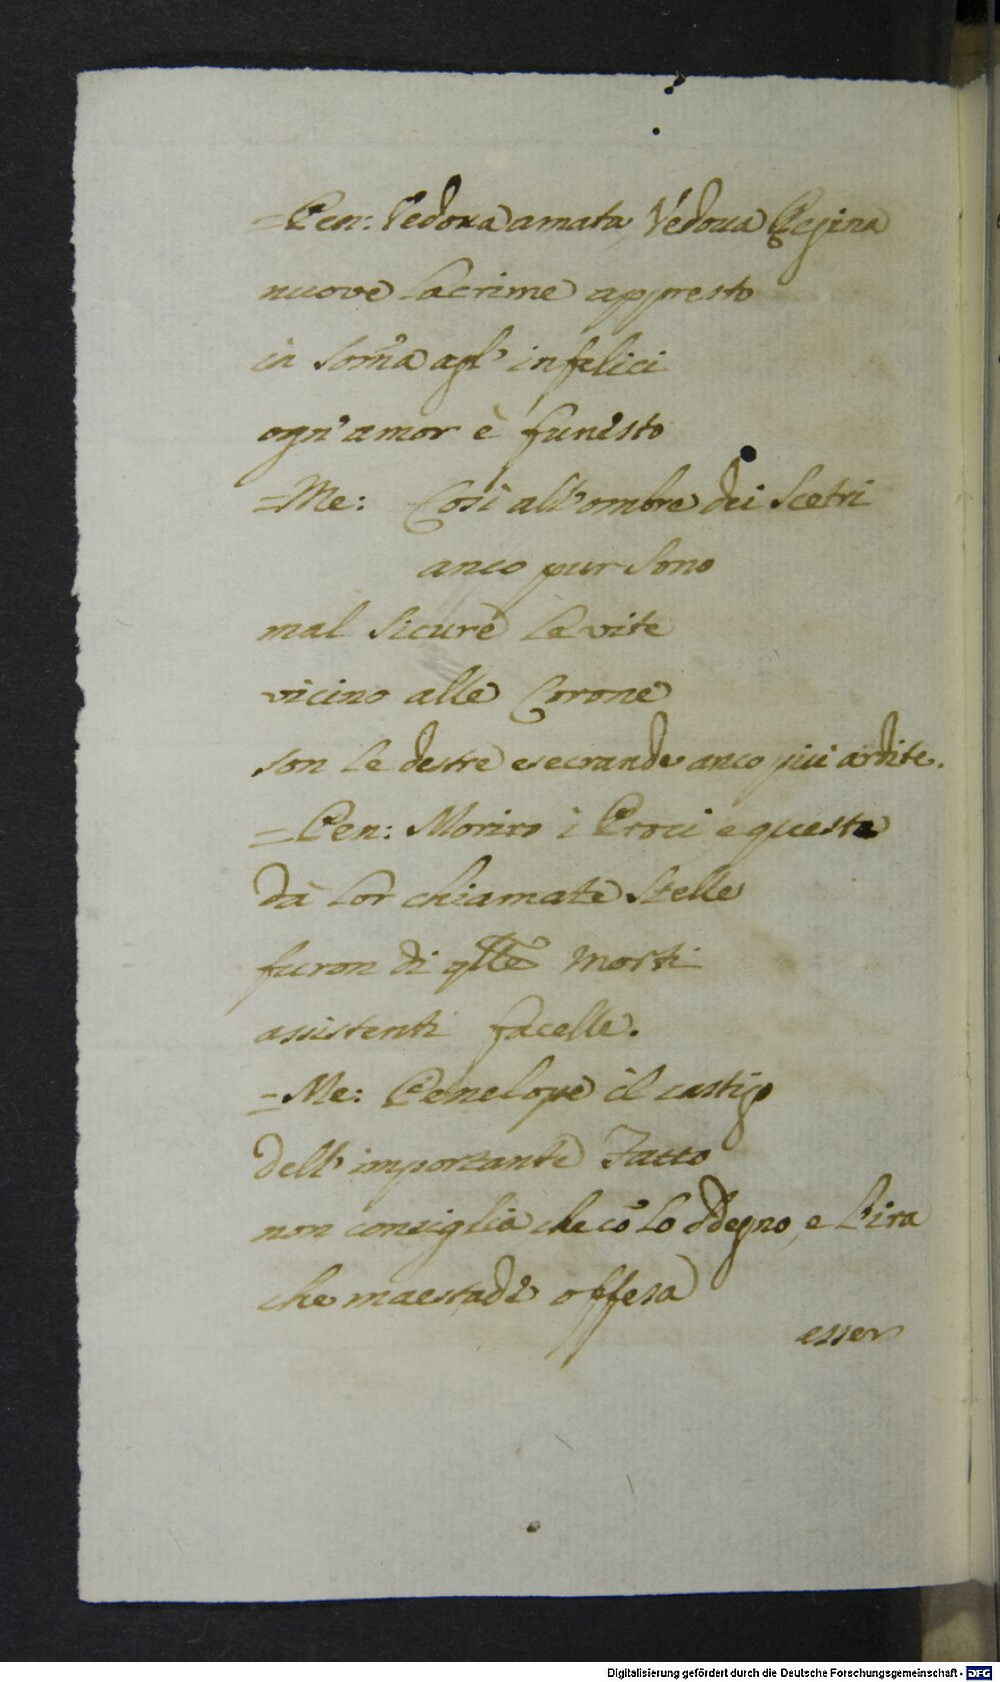 =Pen: Vedoua amata, Vedoua Regina
nuove lacrime appresto
in som̃a agl' infelici
ogn' amor è funesto
=Me: Così all'ombre dei Scetri
anco pur sono
mal sicure le vite
vicino alle Corone
son le destre esecrande anco più ardite.
=Pen: Moriro i Proci, e queste
dà lor chiamate stelle
furon di q̃lle morti
assistenti facelle.
=Me: Penelope il castigo
dell' importante Fatto
non consiglia, che cõ lo sdegno, e l'ira
che maestade offesa
esser
Digitalisierung gefördert durch die Deutsche Forschungsgemeinschaft - DFG